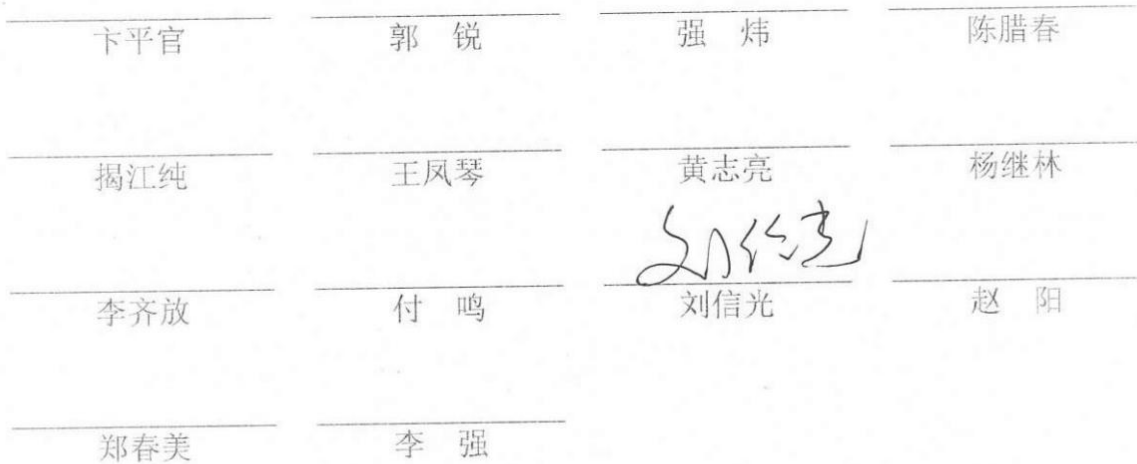 卞平官 郭 锐 强 炜 陈腊春
揭江纯 王凤琴 黄志亮 杨继林
刘信光
李齐放 付 鸣 刘信光 赵 阳
郑春美 李 强